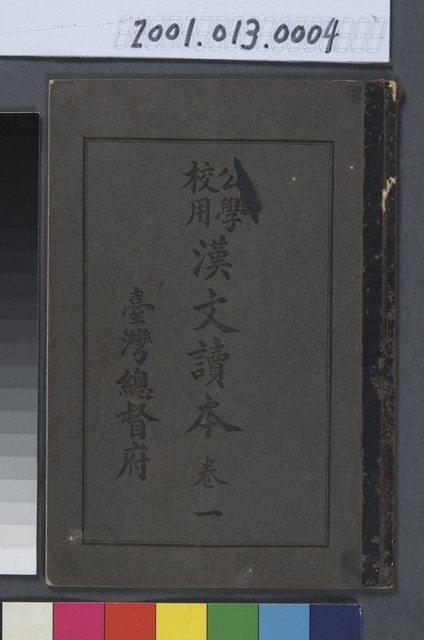 2001.013.0004
公學校用
漢文讀本 卷一
臺灣總督府